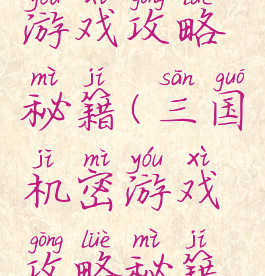 yóu xì gōng lüè
游戏攻略
mì jí sān guó
秘籍(三国
jī mì yóu xì
机密游戏
gōng lüè mì jí
攻略秘籍